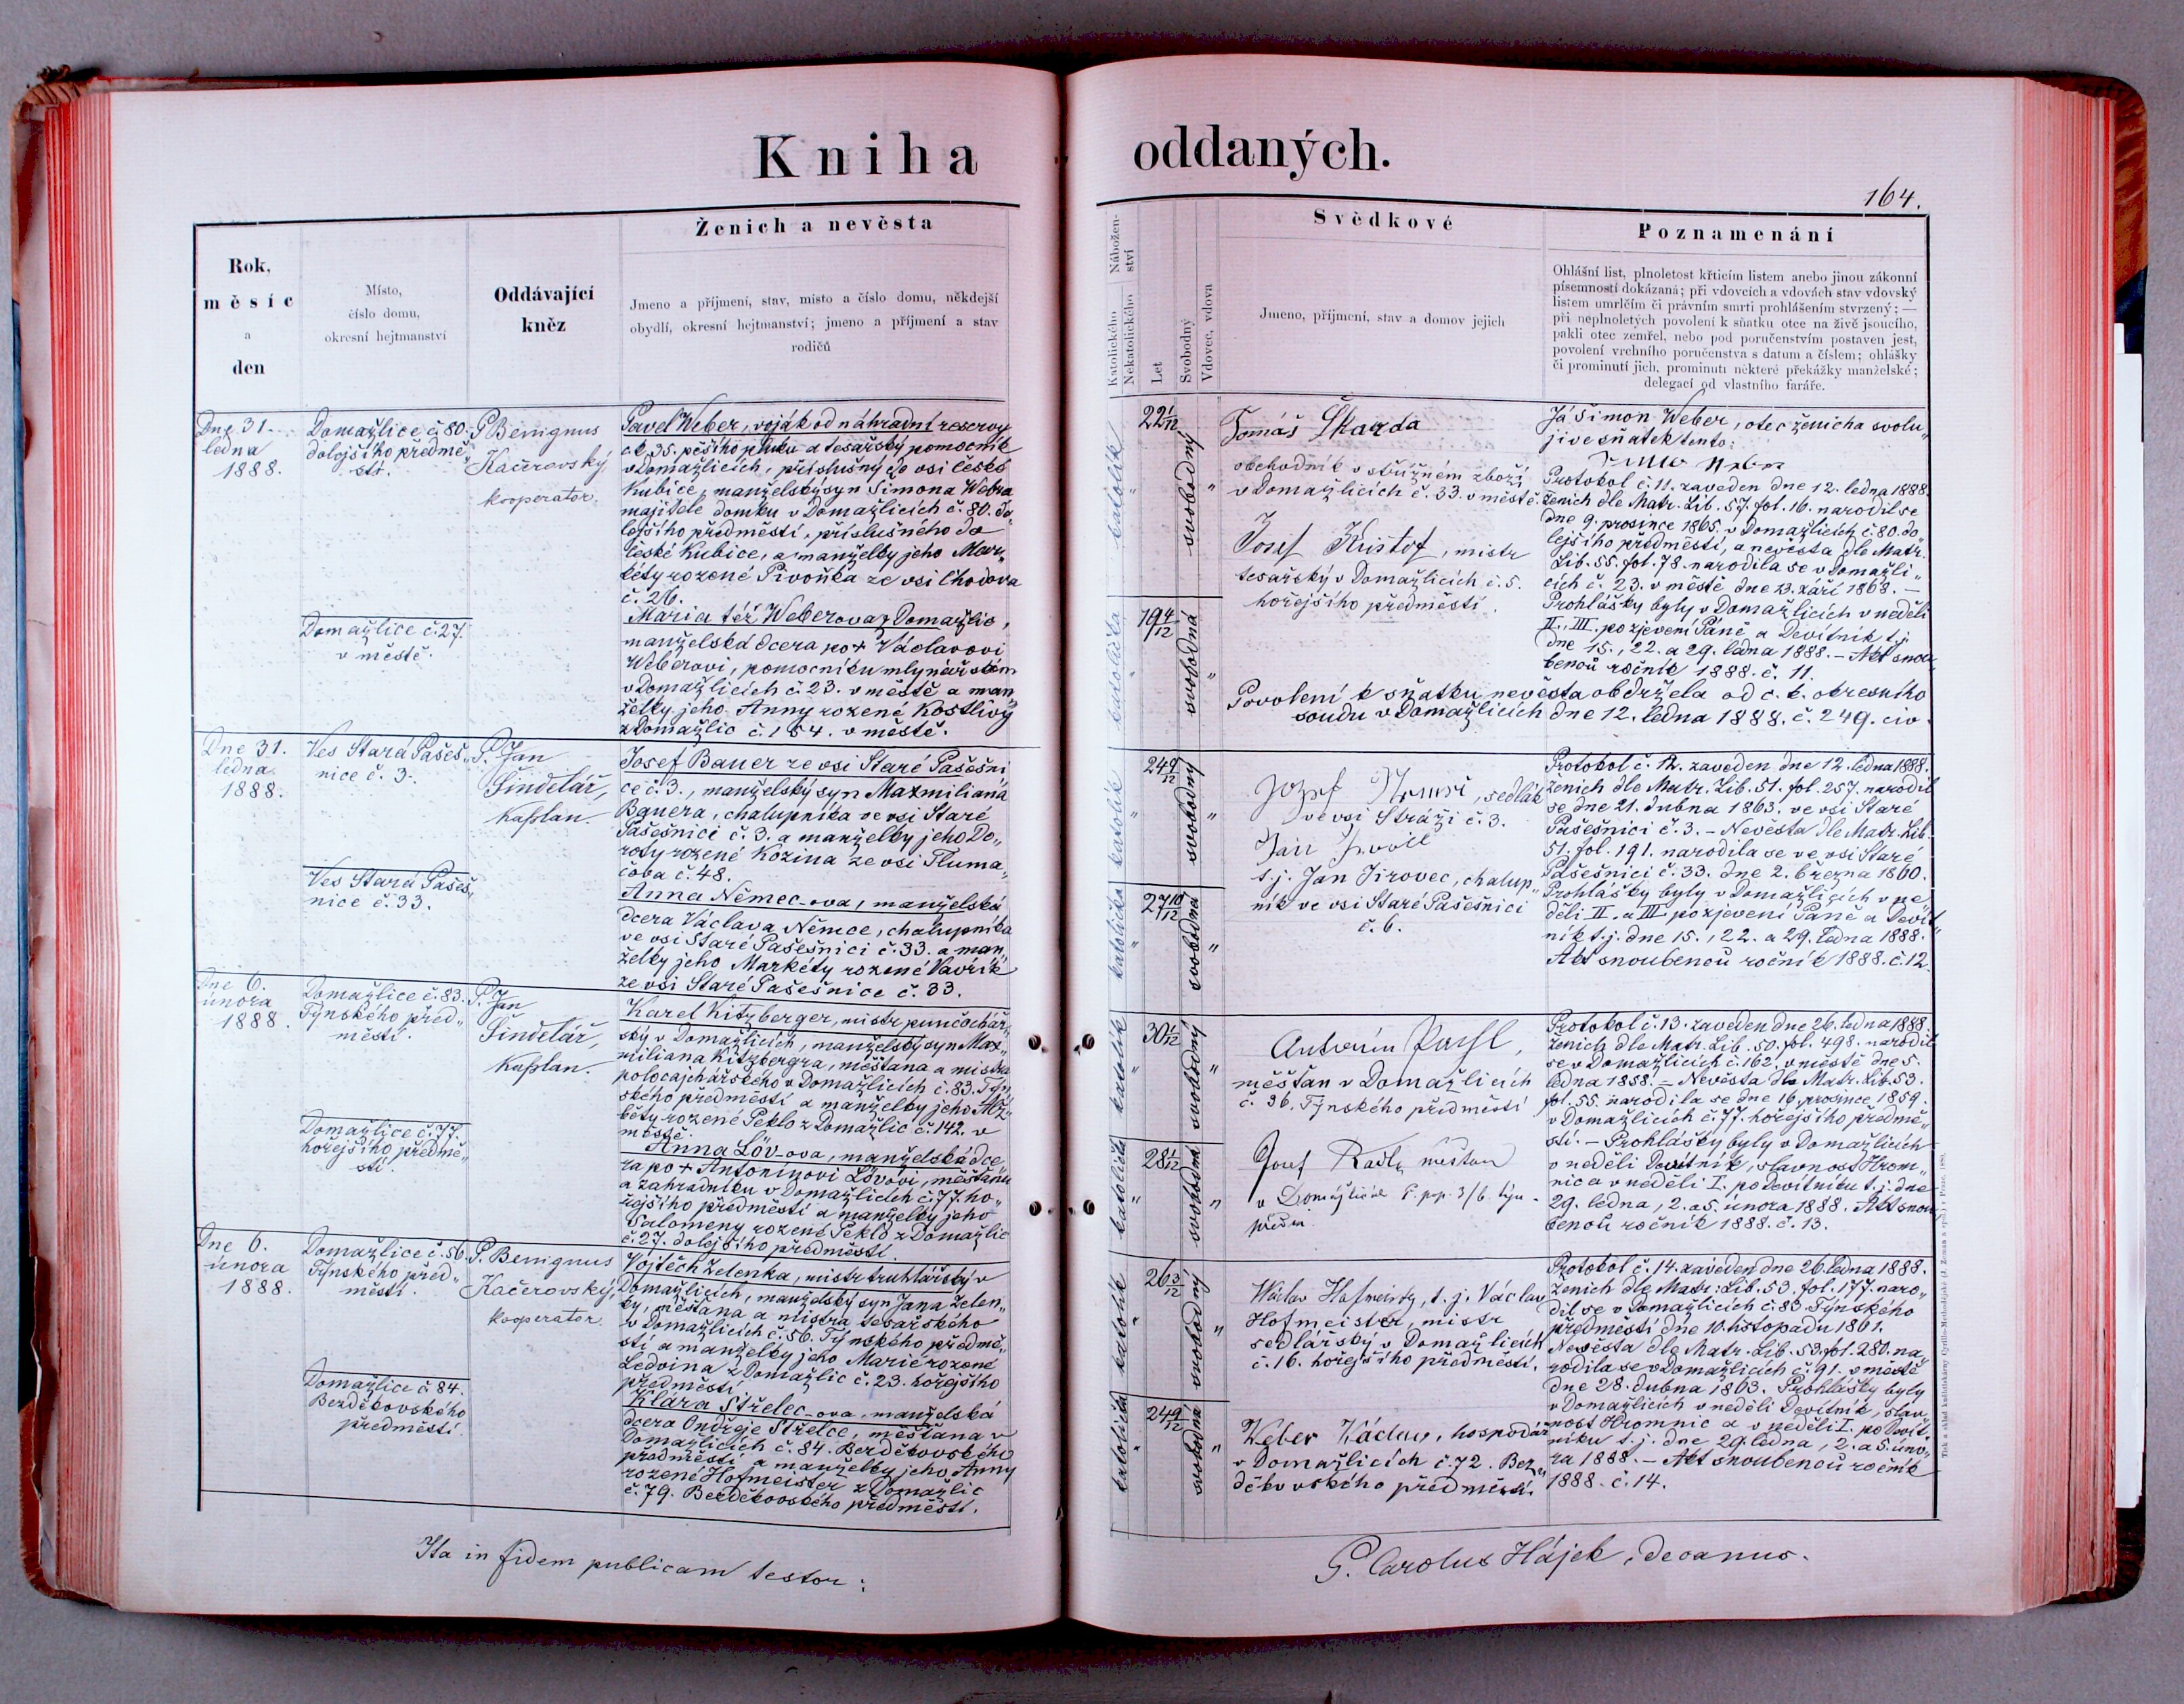 Kniha oddaných.
164.
Rok,
měsíc
a
den
Místo,
číslo domu,
okresní hejtmanství
Oddávající
kněz
Ženich a nevěsta
Jmeno a příjmení, stav, místo a číslo domu, někdejší
obydlí, okresní hejtmanství; jmeno a příjmení a stav
rodičů
Nábožen-
ství
Katolického
Nekatolického
Let
Svobodný
Vdovec, vdova
Svědkové
Jmeno, příjmení, stav a domov jejich
Poznamenání
Ohlášní list, plnoletost křticím listem anebo jinou zákonní
písemností dokázaná; při vdovcích a vdovách stav vdovský
listem umrlčím či právním smrti prohlášením stvrzený; —
při neplnoletých povolení k sňatku otce na živě jsoucího,
pakli otec zemřel, nebo pod poručenstvím postaven jest,
povolení vrchního poručenstva s datum a číslem; ohlášky
či prominutí jich, prominutí některé překážky manželské;
delegací od vlastního faráře.
Dne 31.
ledna
1888.
Domažlice č. 80.
dolejšího předmě„
stí.
P. Benignus
Kačerovský
kooperator.
Pavel Weber, voják od náhradní reservy
c. k. 35. pěšího pluku a tesařský pomocník
v Domažlicích, příslušný do vsi české
Kubice, manželský syn Šimona Webra
majitele domku v Domažlicích č. 80. do„
lejšího předměstí, příslušného do
české Kubice, a manželky jeho Mar„
kéty rozené Pivoňka ze vsi Chodova
č. 26.
Domažlice č. 27.
v městě.
Maria též Weberova z Domažlic,
manželská dcera po + Václavovi
Weberovi, pomocníku mlynářském
v Domažlicích č. 23. v městě a man„
želky jeho Anny rozené Kostlivý
z Domažlic č. 154. v městě.
katolík
22 1/12
svobodný
katolička
19 4/12
svobodná
Tomáš Škarda
obchodník v střižném zboží
v Domažlicích č. 33. v městě.
Josef Krištof, mistr
tesařský v Domažlicích č. 5.
hořejšího předměstí.
Já Šimon Weber, otec ženicha svolu„
ji ve sňatek tento:
Protokol č. 11. zaveden dne 12. ledna 1888.
Ženich dle Matr. Lib. 57. fol. 16. narodil se
dne 9. prosince 1865. v Domažlicích č. 80. do„
lejšího předměstí, a nevěsta dle Matr.
Lib. 55. fol. 78. narodila se v Domažli„
cích č. 23. v městě dne 23. září 1868. —
Prohlášky byly v Domažlicích v neděli
II., III. po zjevení Páně a Devítník t. j.
dne 15., 22. a 29. ledna 1888. — Akt snou„
benců ročník 1888. č. 11.
Povolení k sňatku nevěsta obdržela od c. k. okresního
soudu v Domažlicích dne 12. ledna 1888. č. 249. civ.
Dne 31.
ledna
1888.
Ves Stará Pašeš„
nice č. 3.
P. Jan
Šindelář,
kaplan.
Josef Bauer ze vsi Staré Pašešni
ce č. 3., manželský syn Maxmiliana
Bauera, chalupníka ve vsi Staré
Pašešnici č. 3. a manželky jeho Do„
roty rozené Kozina ze vsi Tluma„
čova č. 48.
Ves Stará Pašeš„
nice č. 33.
Anna Němec-ova, manželská
dcera Václava Němce, chalupníka
ve vsi Staré Pašešnici č. 33. a man„
želky jeho Markéty rozené Vavřík
ze vsi Staré Pašešnice č. 33.
katolík
24 9/12
svobodný
katolička
27 10/12
svobodná
Jozef
, sedlák
ve vsi Stráži č. 3.
Jan
t. j. Jan Jirovec, chalup„
ník ve vsi Staré Pašešnici
č. 6.
Protokol č. 12. zaveden dne 12. ledna 1888.
Ženich dle Matr. Lib. 51. fol. 257. narodil
se dne 21. dubna 1863. ve vsi Staré
Pašešnici č. 3. — Nevěsta dle Matr. Lib.
51. fol. 191. narodila se ve vsi Staré
Pašešnici č. 33. dne 2. března 1860.
Prohlášky byly v Domažlicích v ne„
děli II. a III. po zjevení Páně a Devít„
ník t. j. dne 15., 22. a 29. ledna 1888.
Akt snoubenců ročník 1888. č. 12.
Dne 6.
února
1888.
Domažlice č. 83.
Týnského před„
městí.
P. Jan
Šindelář,
kaplan.
Karel Kitzberger, mistr punčochář„
ský v Domažlicích, manželský syn Max„
miliana Kitzbergra, měšťana a mistra
polocajchářského v Domažlicích č. 83. Týn„
ského předměstí a manželky jeho Alž„
běty rozené Peklo z Domažlic č. 142. v
městě.
Domažlice č. 77.
hořejšího předmě„
stí.
Anna Löv-ova, manželská dce„
ra po + Antonínovi Lövovi, měšťanu
a zahradníku v Domažlicích č. 77. ho„
řejšího předměstí a manželky jeho
Salomeny rozené Peklo z Domažlic
č. 27. dolejšího předměstí.
katolík
30 1/12
svobodný
katolička
28 1/12
svobodná
Antonín
měšťan v Domažlicích
č. 36. Týnského předměstí
Josef měšťan
v Domažlicích
Protokol č. 13. zaveden dne 26. ledna 1888.
Ženich dle Matr. Lib. 50. fol. 498. narodil
se v Domažlicích č. 162. v městě dne 5.
ledna 1858. — Nevěsta dle Matr. Lib. 53.
fol. 55. narodila se dne 16. prosince 1859.
v Domažlicích č. 77. hořejšího předmě„
stí. — Prohlášky byly v Domažlicích
v neděli Devítník, slavnost Hrom„
nic a v neděli I. po Devítníku t. j. dne
29. ledna, 2. a 5. února 1888. Akt snou„
benců ročník 1888. č. 13.
Dne 6.
února
1888.
Domažlice č. 56.
Týnského před„
městí.
P. Benignus
Kačerovský,
kooperator.
Vojtěch Zelenka, mistr truhlářský v
Domažlicích, manželský syn Jana Zelen„
ky, měšťana a mistra tesařského
v Domažlicích č. 56. Týnského předmě„
stí a manželky jeho Marie rozené
Ledvina z Domažlic č. 23. hořejšího
předměstí.
Domažlice č. 84.
Bezděkovského
předměstí.
Klára Střelec-ova, manželská
dcera Ondřeje Střelce, měšťana v
Domažlicích č. 84. Bezděkovského
předměstí a manželky jeho Anny
rozené Hofmeister z Domažlic
č. 79. Bezděkovského předměstí.
katolík
26 3/12
svobodný
katolička
24 9/12
svobodná
t. j. Václav
Hofmeister, mistr
sedlářský v Domažlicích
č. 16. hořejšího předměstí.
Weber Václav, hospodář
v Domažlicích č. 72. Bez„
děkovského předměstí.
Protokol č. 14. zaveden dne 26. ledna 1888.
Ženich dle Matr. Lib. 53. fol. 177. naro„
dil se v Domažlicích č. 83 Týnského
předměstí dne 10. listopadu 1861.
Nevěsta dle Matr. Lib. 53. fol. 280. na„
rodila se v Domažlicích č. 91. v městě
dne 28. dubna 1863. Prohlášky byly
v Domažlicích v neděli Devítník, slav„
nost Hromnic a v neděli I. po Devít„
níku t. j. dne 29. ledna, 2. a 5. úno„
ra 1888. — Akt snoubenců ročník
1888. č. 14.
Ita in fidem publicam testor:
P. Carolus Hájek, decanus.